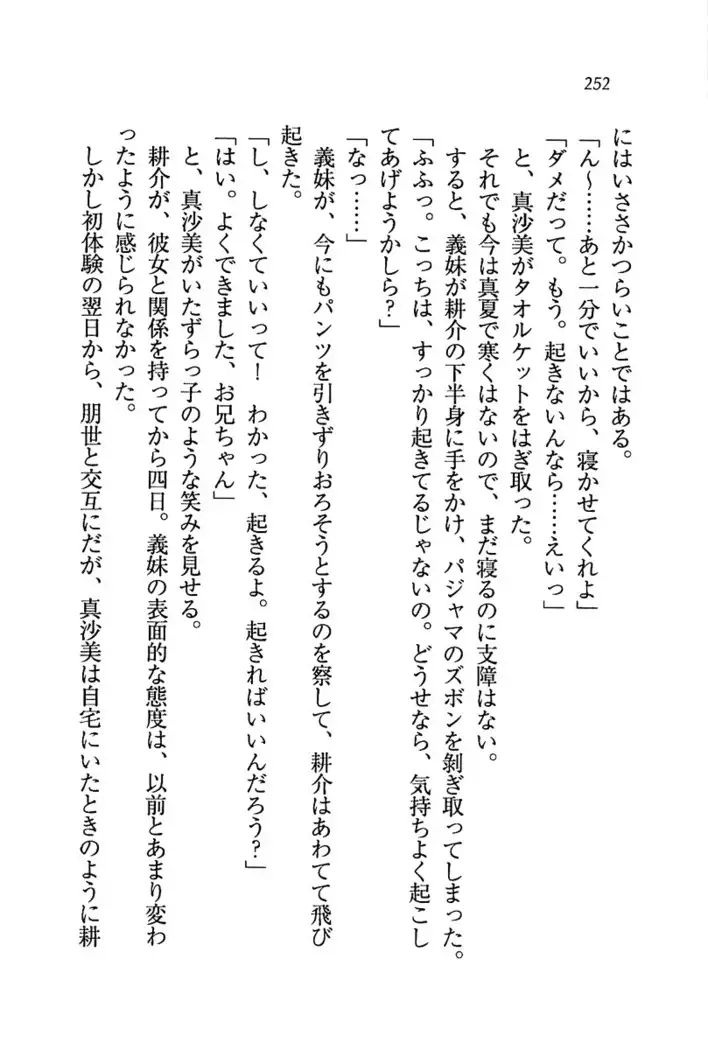 252
にはいささかつらいことではある。
「ん～……あと一分でいいから、寝かせてくれよ」
「ダメだって。もう。起きないんなら……えいっ」
と、真沙美がタオルケットをはぎ取った。
それでも今は真夏で寒くはないので、まだ寝るのに支障はない。
すると、義妹が耕介の下半身に手をかけ、パジャマのズボンを剝ぎ取ってしまった。
「ふふっ。こっちは、すっかり起きてるじゃないの。どうせなら、気持ちよく起こし
てあげようかしら？」
「なっ……」
義妹が、今にもパンツを引きずりおろそうとするのを察して、耕介はあわてて飛び
起きた。
「し、しなくていいって！　わかった、起きるよ。起きればいいんだろう？」
「はい。よくできました、お兄ちゃん」
と、真沙美がいたずらっ子のような笑みを見せる。
耕介が、彼女と関係を持ってから四日。義妹の表面的な態度は、以前とあまり変わ
ったように感じられなかった。
しかし初体験の翌日から、朋世と交互にだが、真沙美は自宅にいたときのように耕